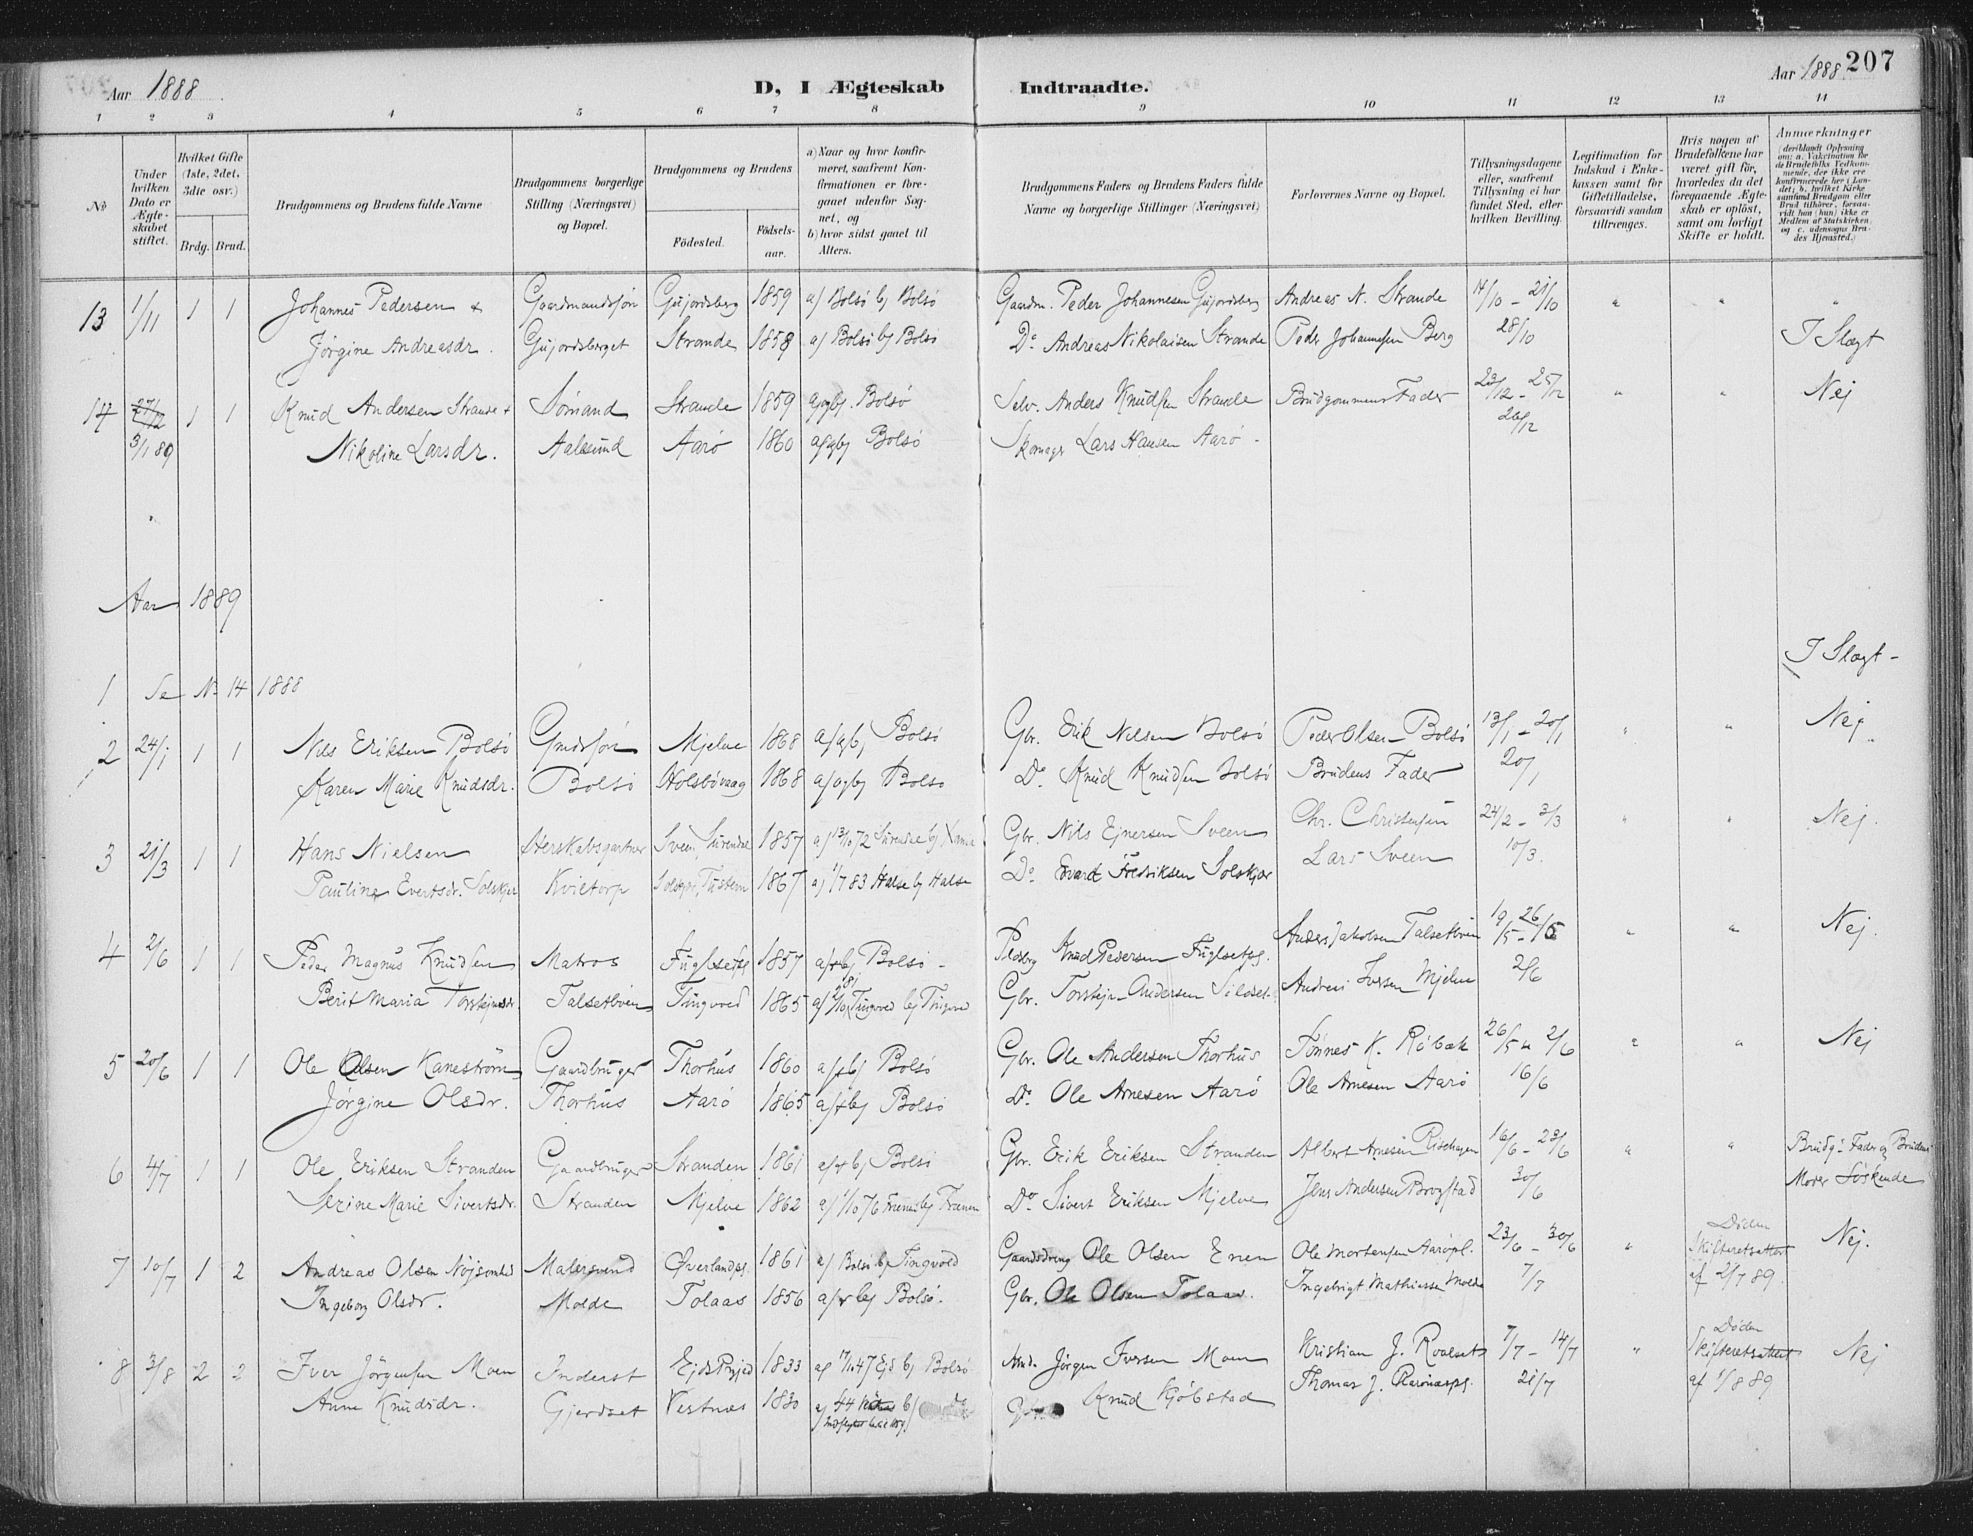 Aar 1888. D, I Ægteskab Indtraadte. Aar 1888 207
1 2 3 4 5 6 7 8 9 10 11 12 13 14
No
Under hvilken Dato er Ægteskabet stiftet.
Hvilket Gifte (1ste, 2det, 3die osv.)
Brdg. Brud.
Brudgommens og Brudens fulde Navne
Brudgommens borgerlige Stilling (Næringsvei) og Bopæl.
Brudgommens og Brudens
Fødested. Fødselsaar.
a) Naar og hvor konfirmeret, saafremt Konfirmationen er foregaaet udenfor Sognet, og
b) hvor sidst gaaet til Alters.
Brudgommens Faders og Brudens Faders fulde Navne og borgerlige Stillinger (Næringsvei)
Forlovernes Navne og Bopæl.
Tillysningsdagene eller, saafremt Tillysning ei har fundet Sted, efter hvilken Bevilling.
Legitimation for Indskud i Enkekassen samt for Giftetilladelse, forsaavidt saadan tiltrænges.
Hvis nogen af Brudefolkene har været gift før, hvorledes da det foregaaende Ægteskab er opløst, samt om lovligt Skifte er holdt.
Anmærkninger (deriblandt Oplysning om: a. Vakcination for de Brudefolks Vedkommende, der ikke ere konfirmerede her i Landet; b. hvilket Kirkesamfund Brudgom eller Brud tilhører, forsaavidt han (hun) ikke er Medlem af Statskirken, og c. udensogns Brudes Hjemsted.)
13 1/11 1 1 Johannes Pedersen & Gaardmandssøn Gujordsberg 1859 a) Bolsø b) Bolsø Gaardm. Peder Johannesen Gujordsberg Andreas N. Strande 14/10 - 21/10 " " "
Jørgine Andreasdr. Gujordsberget Strande 1858 a) Bolsø b) Bolsø Do Andreas Nikolaisen Strande Peder Johannesen Berg 28/10 I Slægt
14 27/12 1 1 Knud Andersen Strande & Sømand Strande 1859 a) og b) Bolsø Selv. Anders Knudsen Strande Brudgommens Fader 23/12 - 25/12 " " Nej
3/1 89 Nikoline Larsdr. Aalesund Aarø 1860 a) og b) Bolsø Skomager Lars Hansen Aarø - 26/12
Aar 1889
I Slægt -
1 Se No 14 1888
2 24/1 1 1 Nils Eriksen Bolsø Gmdssøn Mjelve 1868 a) og b) Bolsø Gbr. Erik Nilsen Bolsø Peder Olsen Bolsø 13/1 - 20/1 " " Nej
Karen Marie Knudsdr. Bolsø Holsbøvaag 1868 a) og b) Bolsø Do Knud Knudsen Bolsø Brudens Fader 20/1
3 21/3 1 1 Hans Nielsen Herskabsgartner Sveen, Surendal 1857 a) 13/10 72 Surendal b) Gbr. Nils Ejnersen Sveen Chr. Christensen 24/2 - 3/3 " " Nej.
Pauline Evertsdr. Solskjer Kvietorp Tustern 1867 a) 1/7 83 Halse b) Halse Do Evart Fredriksen Solskjær Lars Sveen 10/3.
4 2/6 1 1 Peder Magnus Knudsen Matros Fuglsetpl. 1857 a) & b) Bolsø - Pladsbg Knud Pedersen Fuglsetpl. Anders Jakobsen Talsetbøen 19/5 - 26/5 " " Nej.
Berit Maria Torstejnsdr. Talsetbøen Tingvoed 1865 Tingvoed b) Tingvoed Gbr. Torstejn Andersen Andreas Iversen Mjelve 2/6
5 20/6 1 1 Ole Olsen Kanestrøm Gaardbruger Thorhus 1860 a) & b) Bolsø Gbr. Ole Andersen Thorhus Tønnes K. Røbæk 26/5 " 2/6 " " Nej
Jørgine Olsdr. Thorhus Aarø 1865 a) & b) Bolsø Do Ole Arnesen Aarø Ole Arnesen Aarø 16/6
6 4/7 1 1 Ole Eriksen Stranden Gaardbruger Stranden 1861 a) & b) Bolsø Gbr. Erik Eriksen Stranden Albert Arnesen 16/6 - 23/6 " " Brudg's Fader og Brudens
Serine Marie Sivertsdr. Stranden Mjelve 1862 a) 1/10 76 Frænen b) Frænen Do Sivert Eriksen Mjelve Jens Andersen Brogstad 30/6 Moder Søskende
7 10/7 1 2 Andreas Olsen Nøjsomhed Malersvend Øverlandspl. 1861 a) Bolsø b) Tingvold Gaardsdreng Ole Olsen Enen Ole Mortensen Aarøpl. 23/6 - 30/6 " Døden Skifteretsattest af 2/7 89. Nej.
Ingeborg Olsdr. Molde Tolaas 1856 a) & b) Bolsø. Gbr. Ole Olsen Tolaas. Ingebrigt Mathiassen Molde 7/7
8 3/8 2 2 Iver Jørgensen Moen Inderst Ejds 1833 47 Ejd b) Bolsø Jørgen Iversen Moen Kristian J. Roalset 7/7 - 14/7 " Døden Skifteretsattest af 1/8 89 Nej
Anne Knudsdr. Gjerdset Vestnæs 1830 44 Knud Kjøbstad Thomas J. 21/7